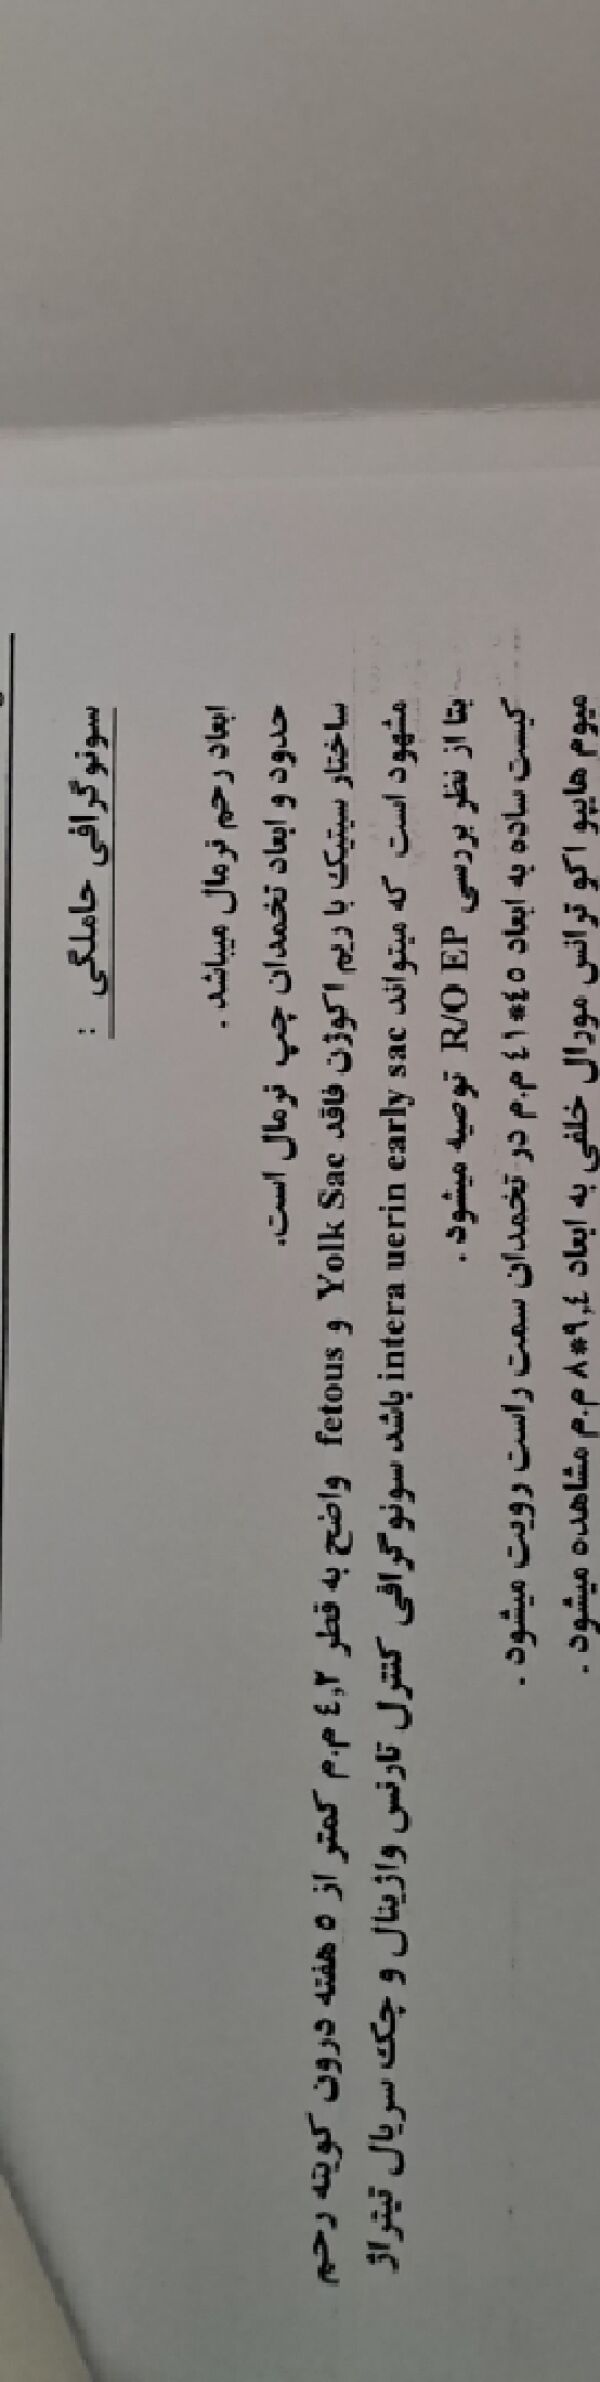 سونوگرافی حاملگی :
ابعاد رحم نرمال میباشد .
حدود و ابعاد تخمدان چپ نرمال است.
ساختار سیتیک با ریم اکوژن فاقد Yolk Sac و fetous واضح به قطر ٤,٢ م.م کمتر از ٥ هفته درون کویته رحم
مشهود است که میتواند intera uerin early sac باشد سونوگرافی کنترل تارنس واژینال و چک سریال تیتراژ
بتا از نظر بررسی R/O EP توصیه میشود .
کیست ساده به ابعاد ٤٥*٤١ م.م در تخمدان سمت راست رویت میشود .
میوم هایپو اکو ترانس مورال خلفی به ابعاد ٩,٤*٨ م.م مشاهده میشود .